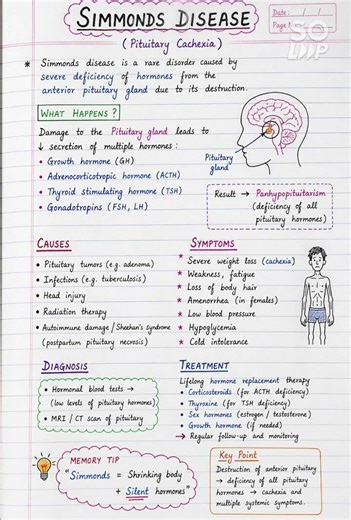 SIMMONDS DISEASE
Date: / /
Page N
SOLMP
(Pituitary Cachexia)
* Simmonds disease is a rare disorder caused by
severe deficiency of hormones from the
anterior pituitary gland due to its destruction.
WHAT HAPPENS?
Damage to the Pituitary gland leads to
↓ secretion of multiple hormones:
• Growth hormone (GH)
• Adrenocorticotropic hormone (ACTH)
• Thyroid stimulating hormone (TSH)
• Gonadotropins (FSH, LH)
Pituitary
gland
Result → Panhypopituitarism
(deficiency of all
pituitary hormones)
CAUSES
• Pituitary tumors (e.g. adenoma)
• Infections (e.g. tuberculosis)
• Head injury
• Radiation therapy
• Autoimmune damage / Sheehan's syndrome
(postpartum pituitary necrosis)
SYMPTOMS
* Severe weight loss (cachexia)
* Weakness, fatigue
* Loss of body hair
* Amenorrhea (in females)
* Low blood pressure
* Hypoglycemia
* Cold intolerance
DIAGNOSIS
• Hormonal blood tests →
(low levels of pituitary hormones)
• MRI / CT scan of pituitary
TREATMENT
Lifelong hormone replacement therapy
• Corticosteroids (for ACTH deficiency)
• Thyroxine (for TSH deficiency)
• Sex hormones (estrogen / testosterone)
• Growth hormone (if needed)
→ Regular follow-up and monitoring
MEMORY TIP
"Simmonds = Shrinking body
+ Silent hormones"
Key Point
Destruction of anterior pituitary
→ deficiency of all pituitary
hormones → cachexia and
multiple systemic symptoms.